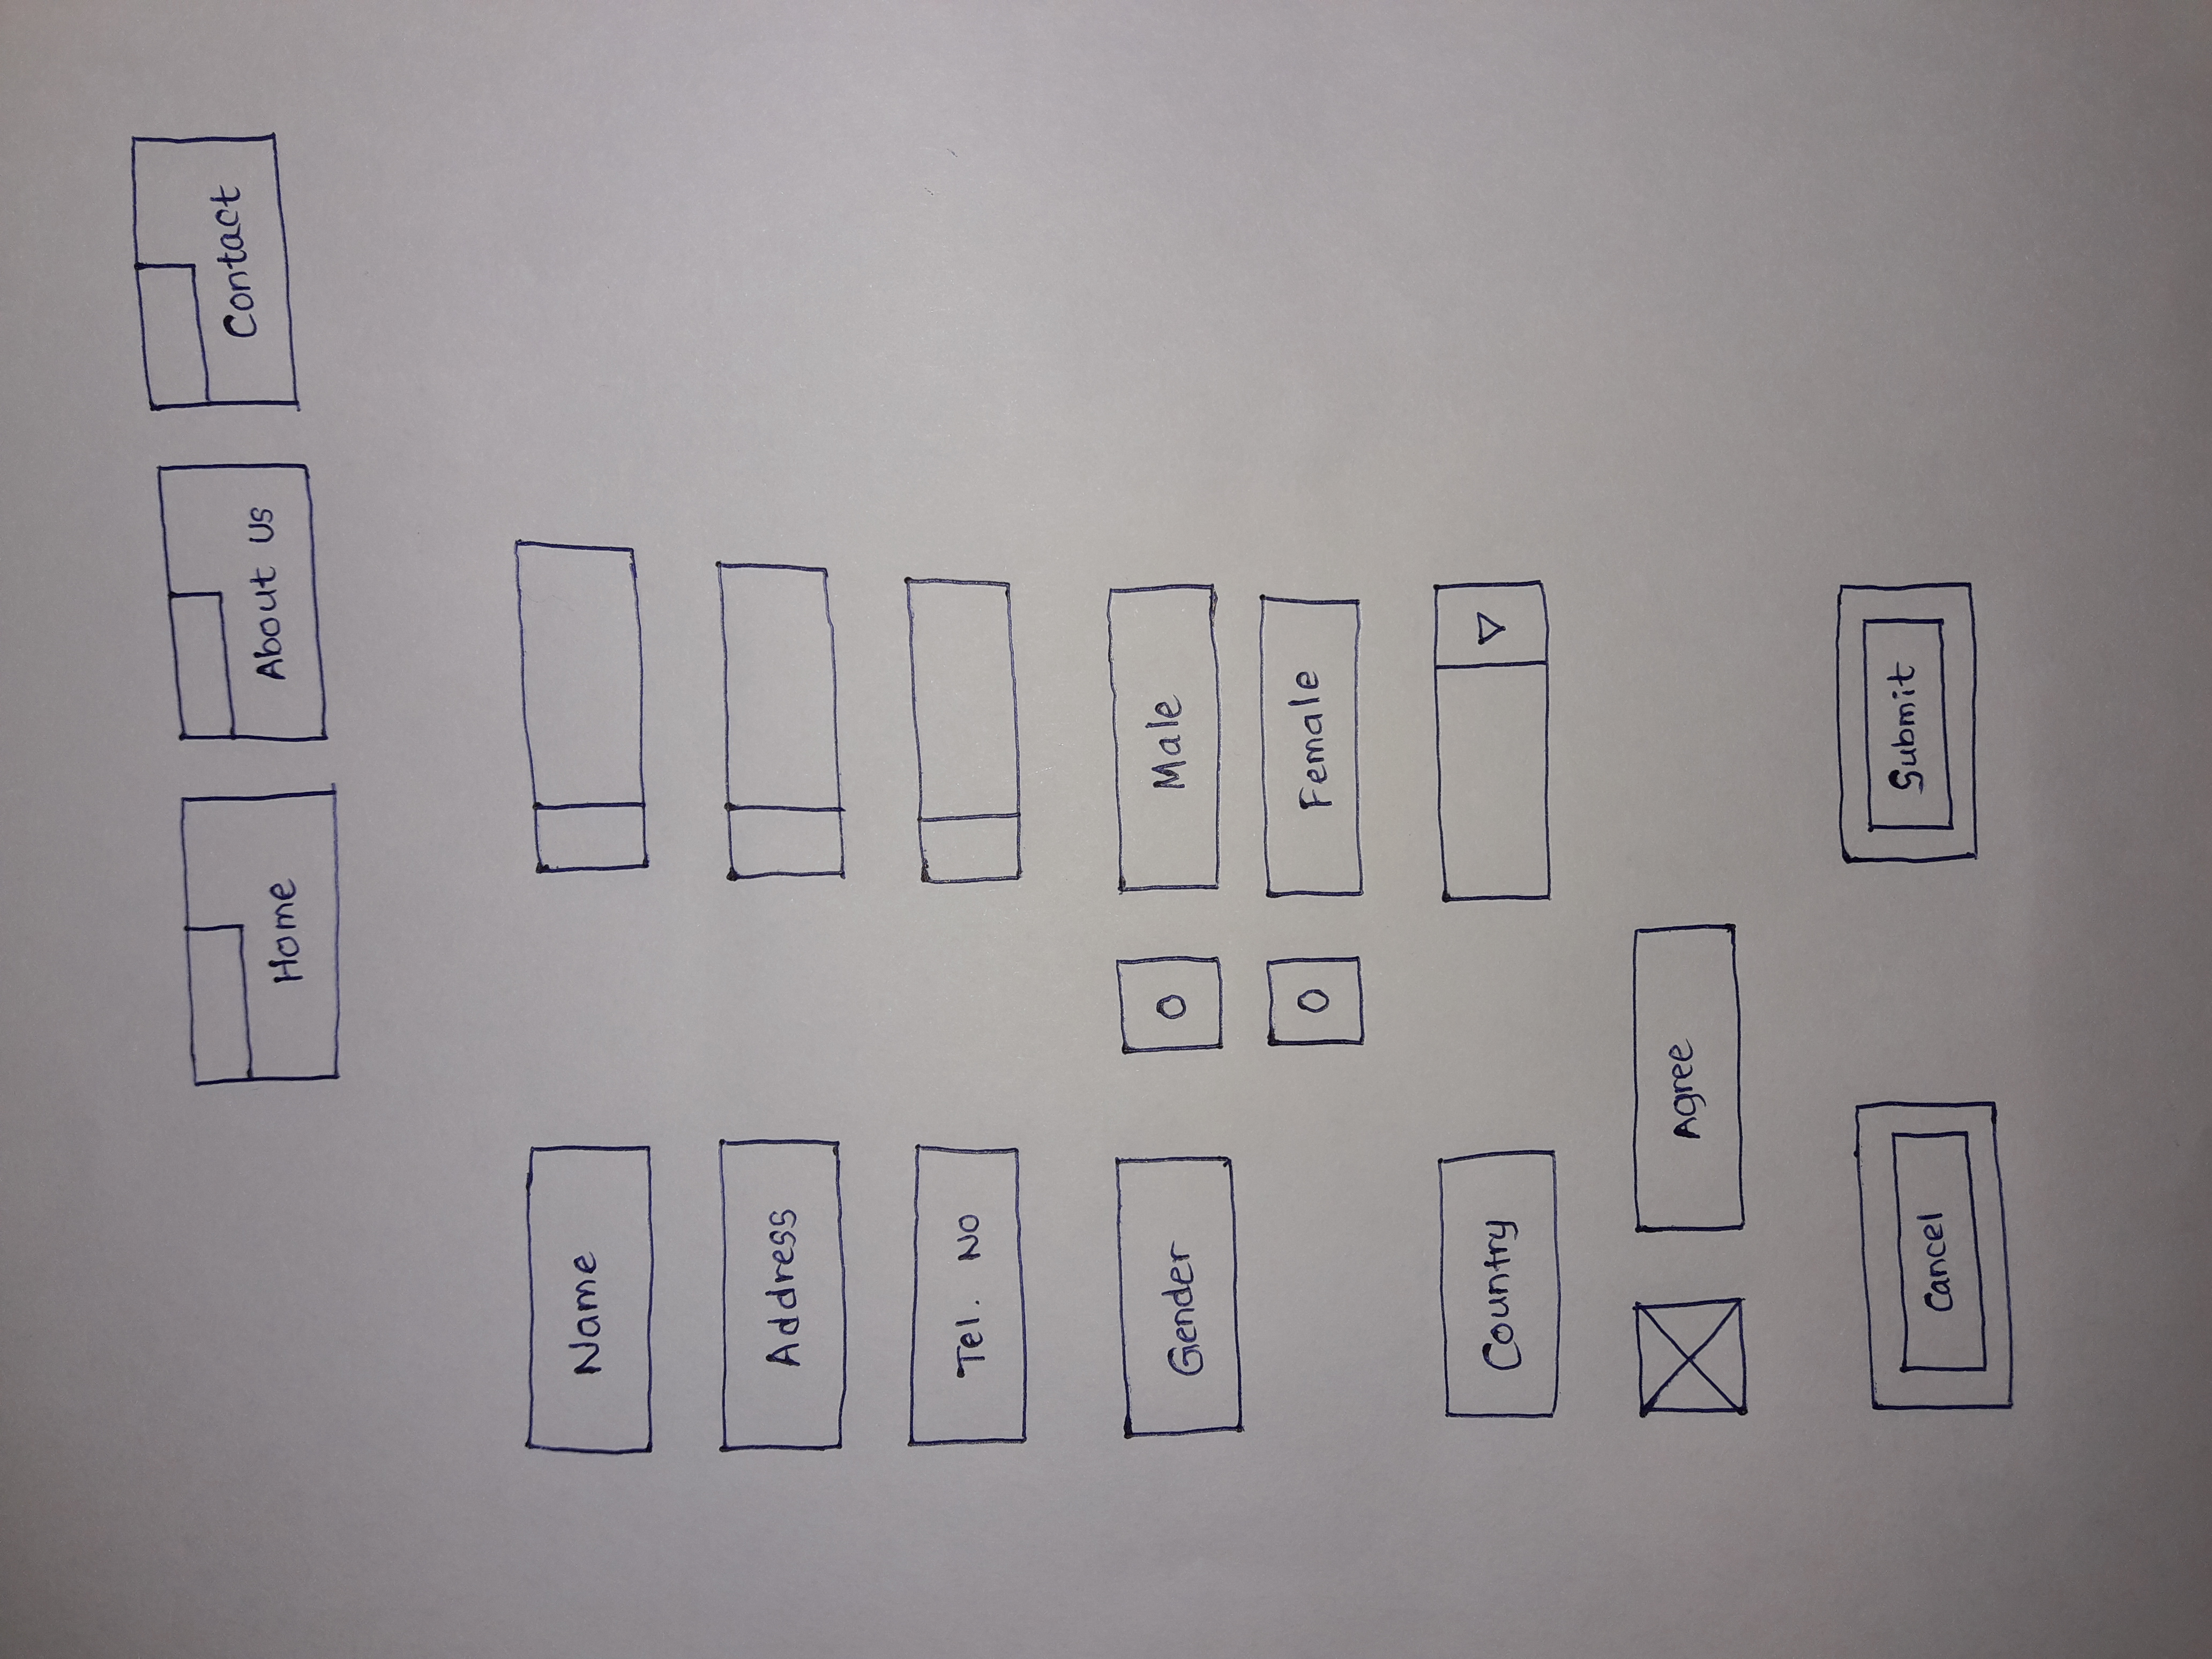 Home
About Us
Contact
Name
Address
Tel. No
Gender
Male
Female
Country
Agree
Cancel
Submit